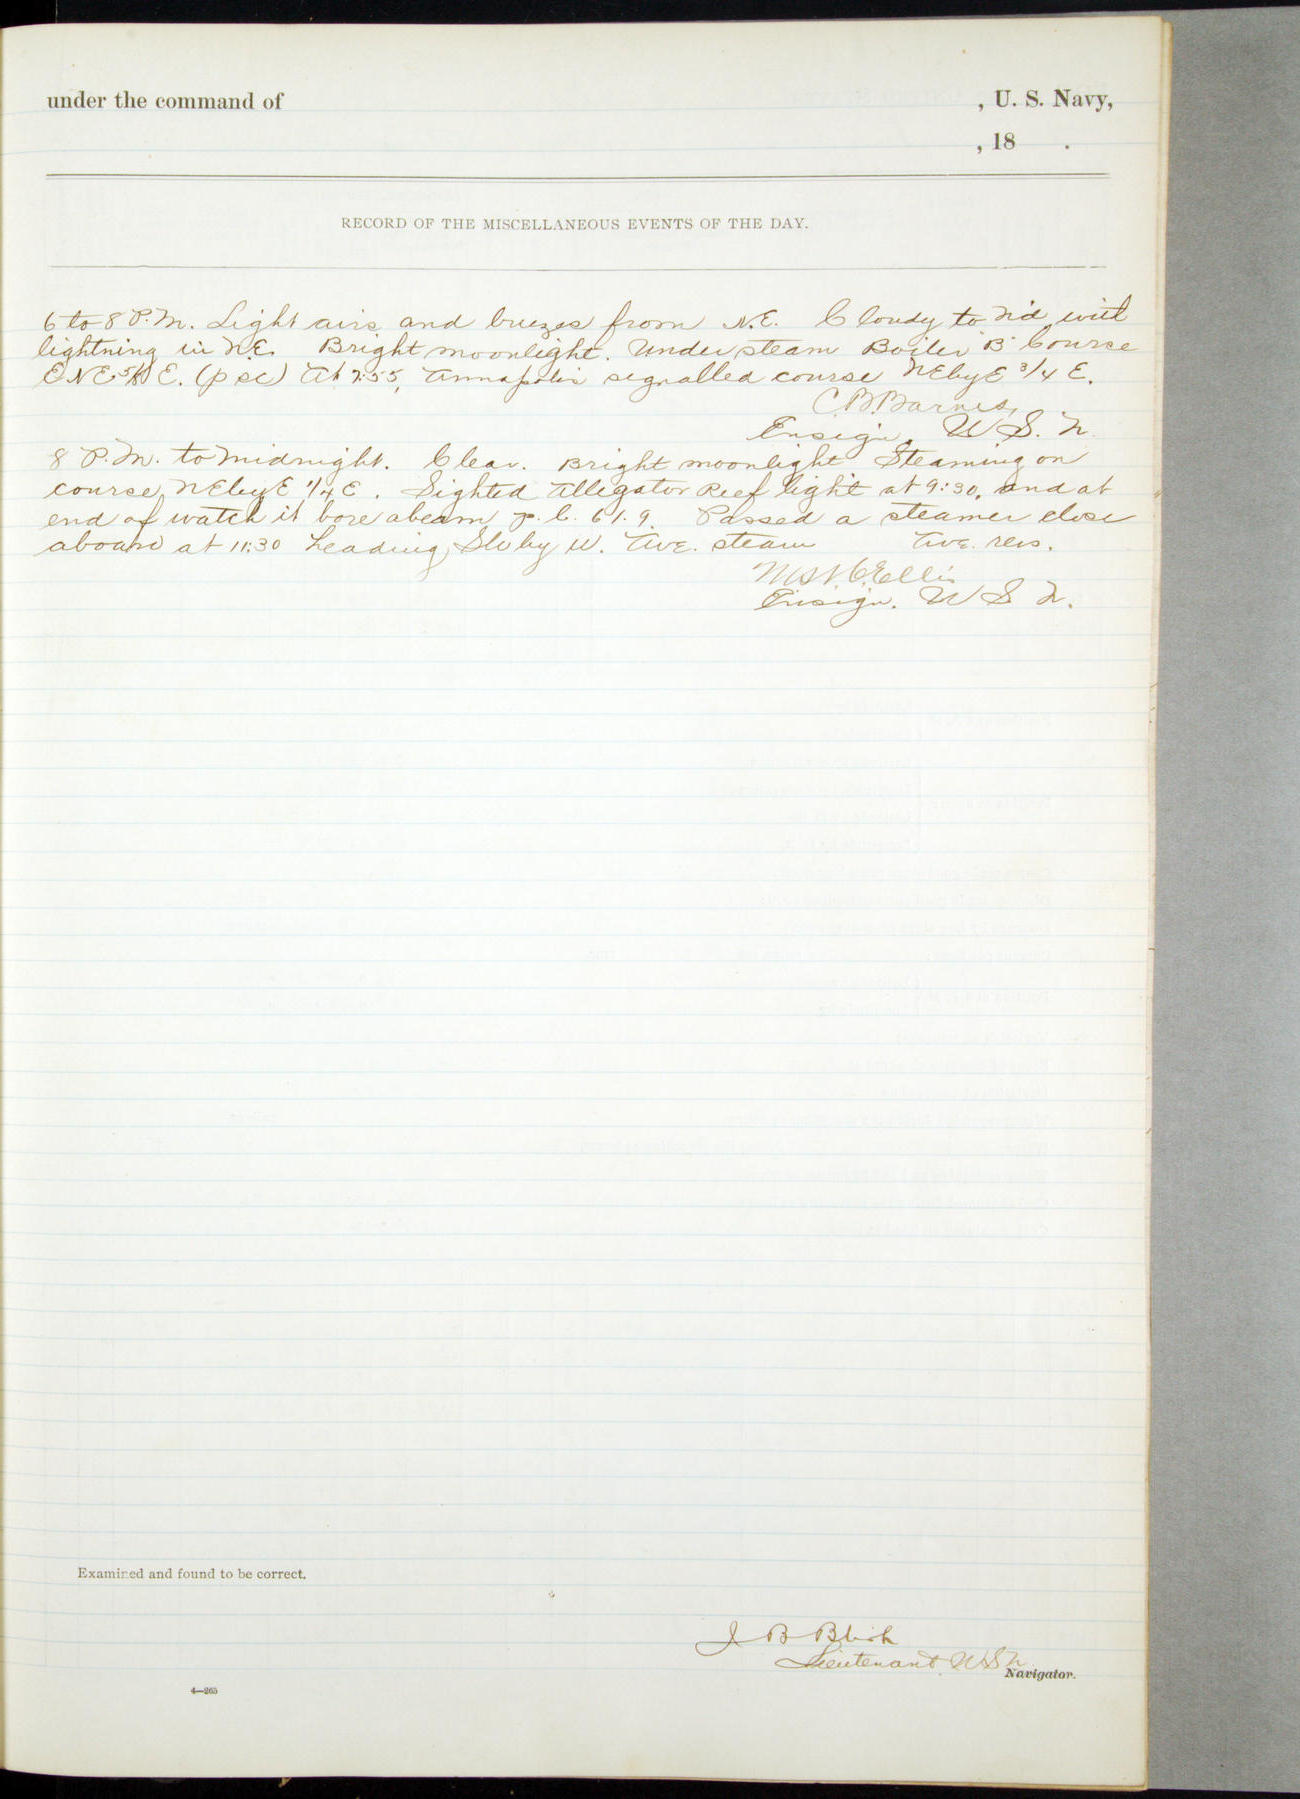 under the command of , U. S. Navy,
, 18 .
RECORD OF THE MISCELLANEOUS EVENTS OF THE DAY.
6 to 8 P.M. Light airs and breezes from N.E. Cloudy to N'd with
lightning in N.E. Bright moonlight. Under steam Boiler B Course
ENE 5/8 E. (psc) At 7:55, Annapolis signalled course NEbyE 3/4 E.
C.B. Barnes,
Ensign, U.S.N.
8 P.M. to Midnight. Clear. Bright moonlight Steaming on
course NEbyE 1/4 E. Sighted Alligator Reef light at 9:30, and at
end of watch it bore abeam p. l. 61.9. Passed a steamer close
aboard at 11:30 heading SW by W. Ave. steam Ave. revs.
Ellis
Ensign. U S N.
Examined and found to be correct.
J B Blish
Lieutenant, U.S.N.
Navigator.
4—265